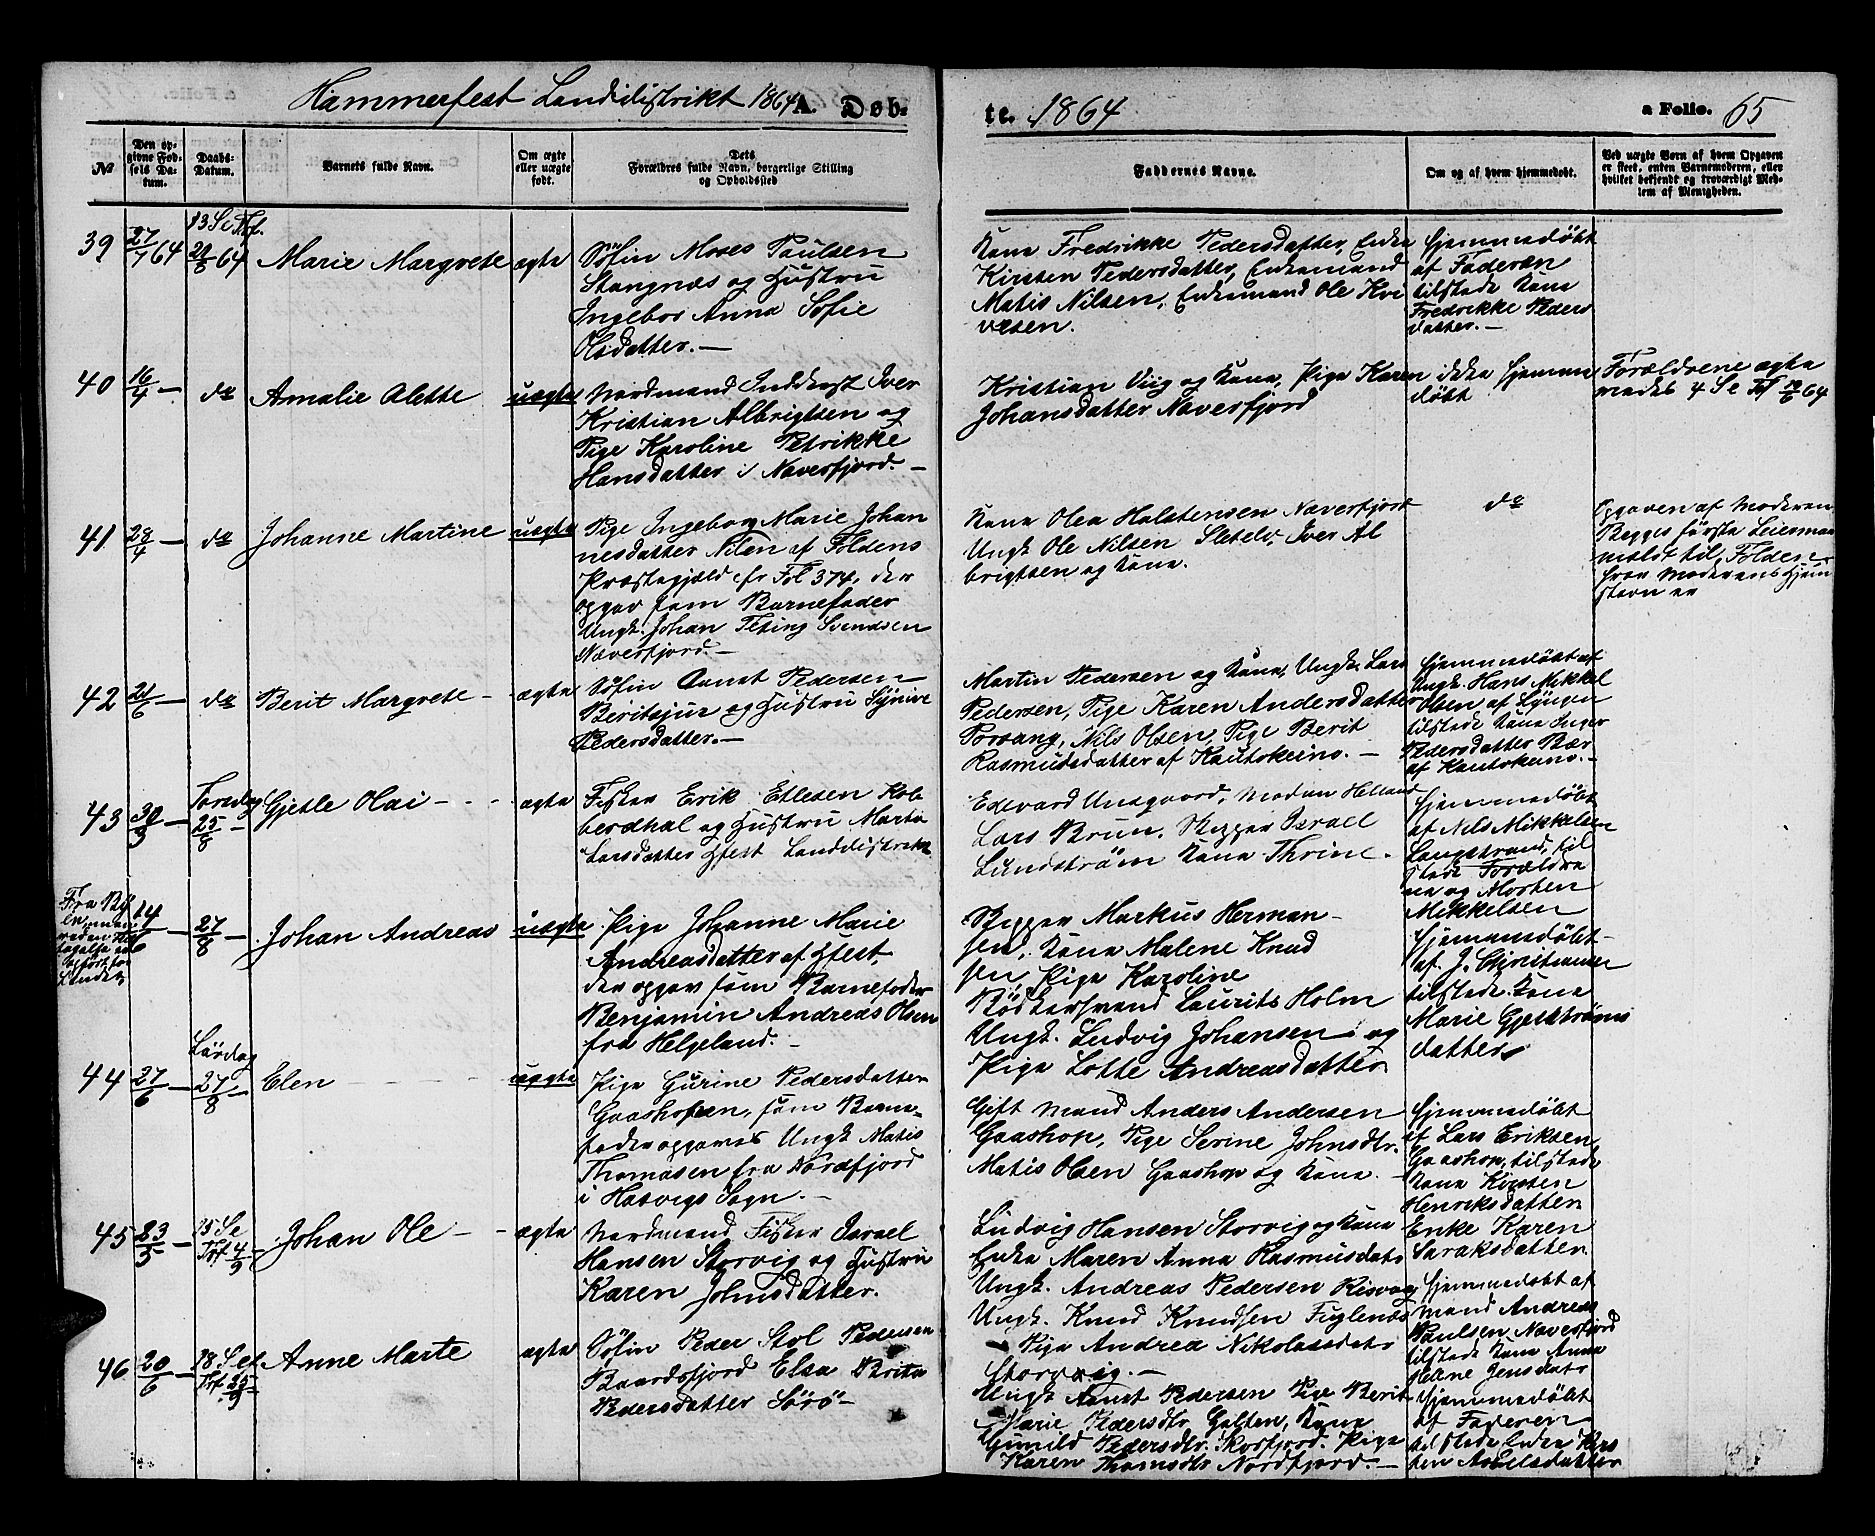 Hammerfest Landdistrikt 1864 A. Døb-
te. 1864
a Folio. 65
No
Den op-
givne Fød-
sels Da-
tum.
Daabs-
Datum.
Barnets fulde Navn.
Om ægte
eller uægte
født.
Dets
Forældres fulde Navn, borgerlige Stilling
og Opholdssted
Faddernes Navne.
Om og af hvem hjemmedøbt.
Ved uægte Børn af hvem Opgaven
er skeet, enten Barnemoderen, eller
hvilket bekjendt og troværdigt Med-
lem af Menigheden.
39 27/7 64
13 Se Trf.
28/8 64
Marie Margrete
ægte
Søfin Moses Paulsen
Stangnæs og Hustru
Ingebor Anna Sofie
Olsdatter. —
Kone Fredrikke Pedersdatter, Enke
Kirsten Pedersdatter, Enkemand
Matis Nilsen, Enkemand Ole Kri
vesen.
Hjemmedøbt
af Faderen
tilstede Kone
Fredrikke Peders
datter. —
40 16/4 —
do
Amalie Alette
uægte
Nordmand Inderst Iver
Kristian Albrigtsen og
Pige Karoline Petrikke
Hansdatter i Naverfjord. —
Kristian Viig og Kone, Pige Karen
Johansdatter Naverfjord
ikke hjemme
døbt
Forældrene ægte
viedes 4 Se Trf 12/6 64
41 28/4 —
do
Johanne Martine
uægte
Pige Ingeborg Marie Johan
nesdatter Nilen af Foldens
Præstegjeld cfr Fol 374, der
opgav som Barnefader
Ungk. Johan Teting Svendsen
Naverfjord. —
Kone Olea Halstensen Naverfjord
Ungk Ole Nilsen Sletelv, Iver Al
brigtsen og Kone.
do
Opgaven af Moderen
Begges første Leiermaal
meldt til Folden
hvor Moderens Hjem
stavn er
42 21/6 —
do
Berit Margrete —
ægte
Søfin Aanut Pedersen
Beritsjur og Hustru Synive
Pedersdatter. —
Martin Pedersen og Kone, Ungk. Lars
Pedersen, Pige Karen Andersdatter
Porsang, Nils Olsen, Pige Berit
Rasmusdatter af Kautokeino. —
Hjemmedøbt af
Ungk. Hans Mikkel
Olsen af Lyngen
tilstede Kone Inger
Pedersdatter Bær
af Kautokeino. —
43 30/3 —
Torsdag
25/8 —
Gjetle Olai — - -
ægte
Fisker Erik Etlesen Kob
berdhal og Hustru Marta
Larsdatter Hfest Landdistrikt
Edevard Unsgaard, Madm Helland
Lars Brun, Skipper Israel
Lundstrøm Kone Thrine.
Hjemmedøbt
af Nils Mikkelsen
Langstrand, til
stede Forældre
ne og Morten
Mikkelsen
Fra By
en, men
Landet
14/6 —
27/8 —
Johan Andreas
uægte
Pige Johanne Marie
Andreasdatter af Hfest,
der opgav som Barnefader
Benjamin Andreas Olsen
fra Helgeland. —
Skipper Markus Herman-
sen, Kone Malene Knud
sen, Pige Karoline
Bødkersvend Laurits Holm
Ungk. Ludvig Johansen og
Pige Lotte Andreasdatter
Hjemmedøbt
af J. Christiansen
tilstede Kone
Marie Gjertstrøms
datter
44 27/6 —
Lørdag
27/8 —
Elen — - - -
uægte
Pige Gurine Pedersdatter
Gaashopen, som Barne-
fader opgaves Ungk Matis
Thomasen fra Nordfjord
i Hasvigs Sogn. —
Gift Mand Anders Andersen
Gaashop, Pige Serine Johnsdtr.
Matis Olsen Gaashop og Kone. —
Hjemmedøbt
af Lars Eriksen
Gaashop, tilstede
Kone Kirsten
Henriksdatter
Enke Karen
Saraksdatter
45 23/5 —
15 Se
Trf 4/9 —
Johan Ole —
ægte
Nordmand Fisker Israel
Hansen Storvig og Hustru
Karen Johnsdatter.
Ludvig Hansen Storvig og Kone
Enke Maren Anna Rasmusdatr
Ungk. Andreas Pedersen Risvag
Ungk. Knud Knudsen Fuglenæs
Pige Andrea Nikolaisdatr
Storvig. —
Hjemmedøbt af
Mand Andreas
Paulsen Naverfjord
tilstede Kone Anna
Helene Jensdatr
46 20/6 —
18 Se
Trf. 25/9 —
Anne Marte
ægte
Søfin Peder Stol Pedersen
Baardsfjord Elsa Brita
Pedersdatter Sørø —
Ungk Aanut Pedersen Pige Berit
Marie Pedersdtr. Galten, Kone
Gunild Pedersdtr. Skorfjord. Pige
Karen Thomsdtr Nordfjord. —
Hjemmedøbt
af Faderen
tilstede Enke Kirs
ten Askelsdatter